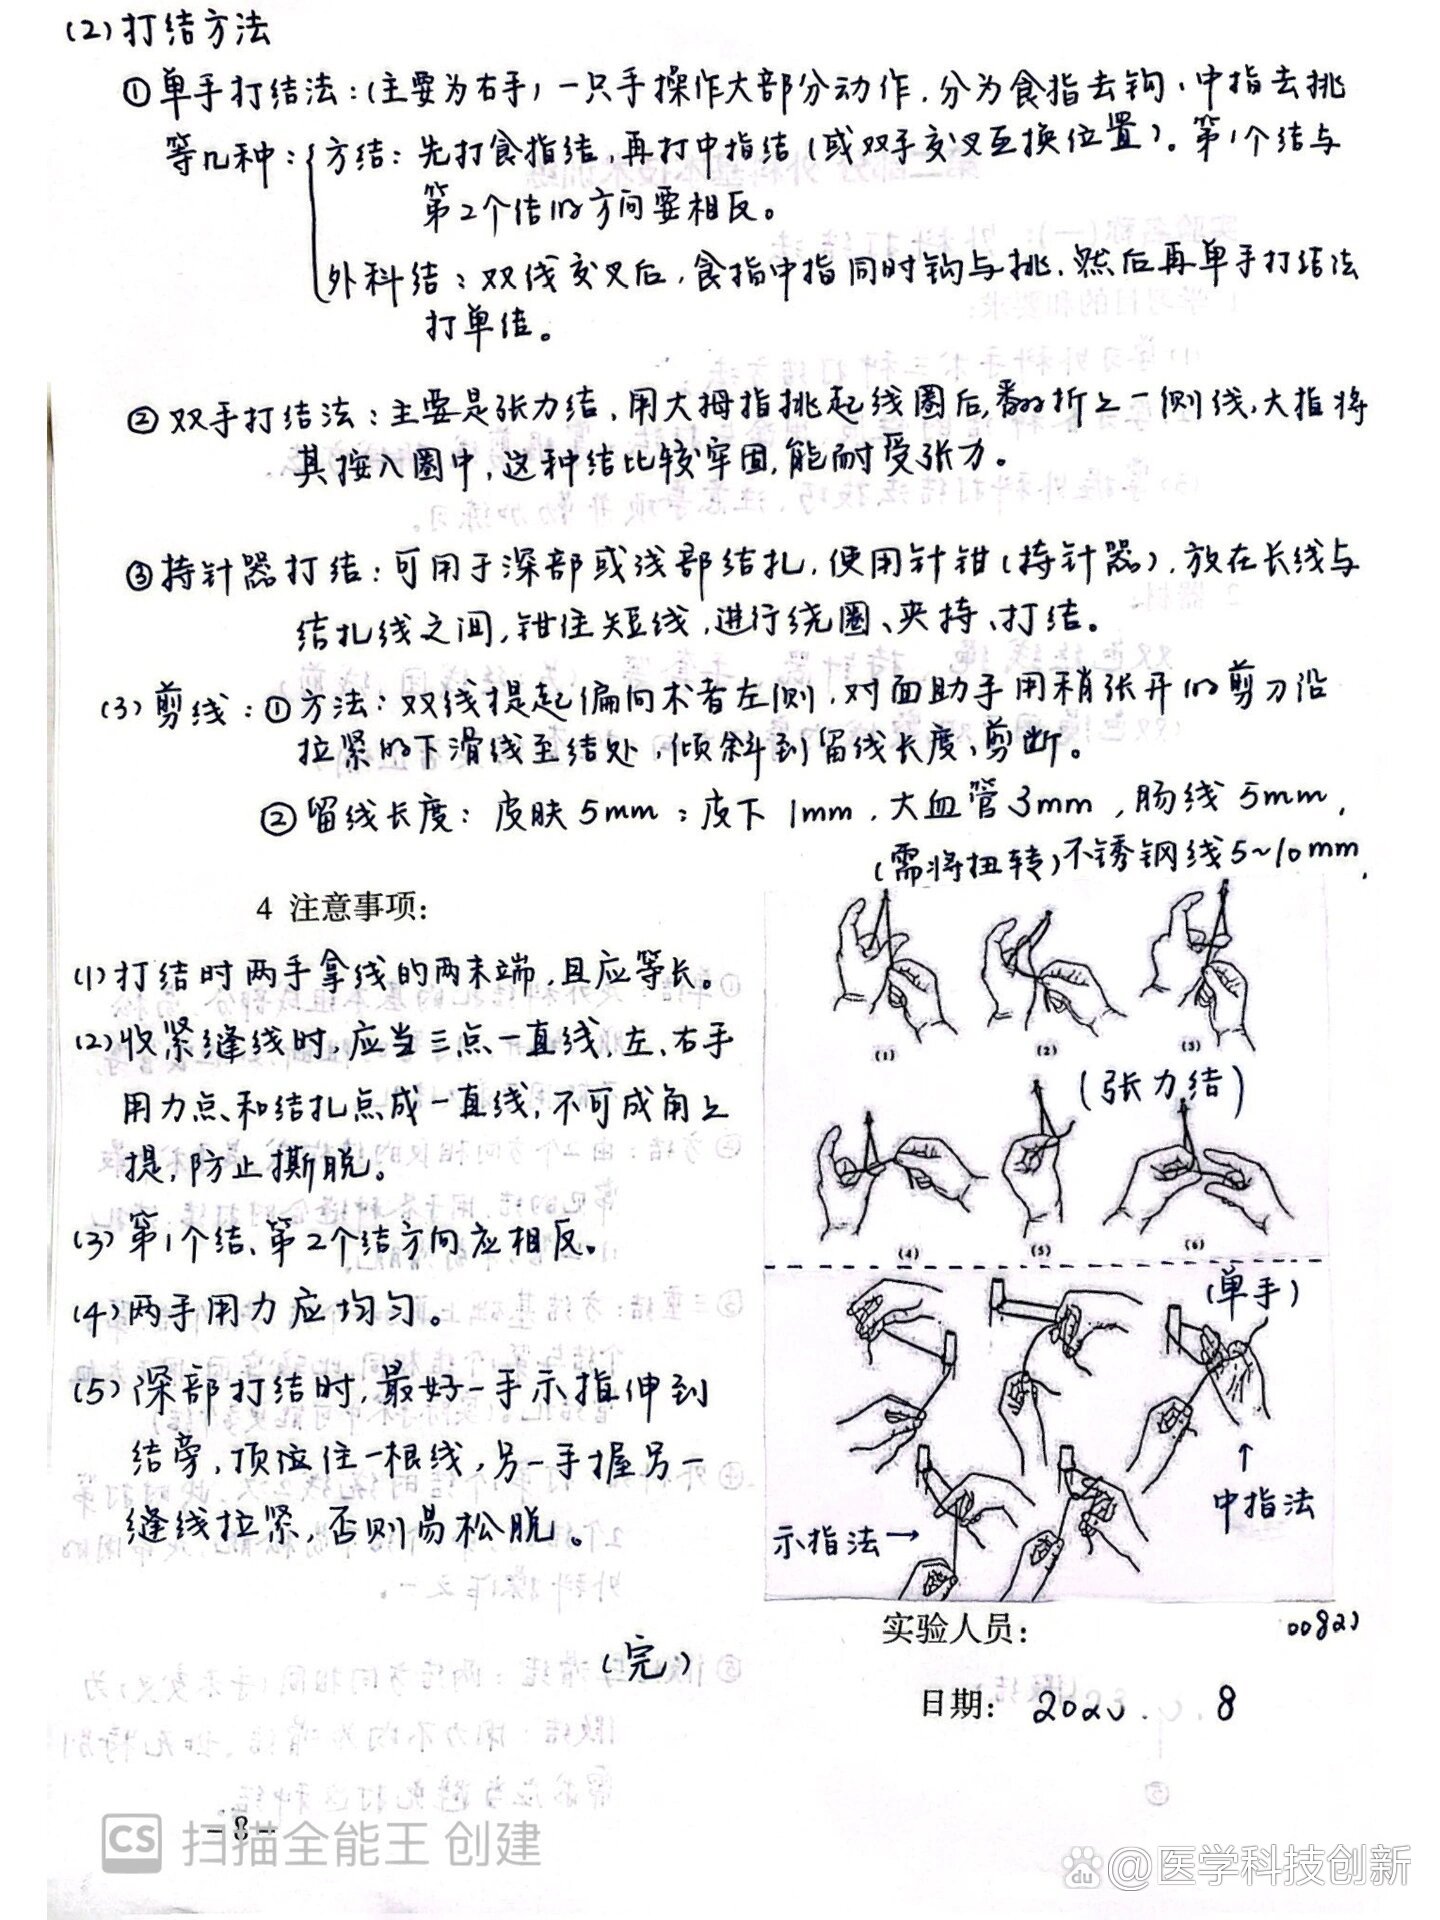 (2)打结方法
①单手打结法:(主要为右手)一只手操作大部分动作,分为食指去钩、中指去挑
等几种:{方结:先打食指结,再打中指结(或双手交叉互换位置)。第1个结与
第2个结的方向要相反。
外科结:双线交叉后,食指中指同时钩与挑,然后再单手打结法
打单结。
②双手打结法:主要是张力结,用大拇指挑起线圈后,翻折上一侧线,大指将
其按入圈中,这种结比较牢固,能耐受张力。
③持针器打结:可用于深部或浅部结扎,使用针钳(持针器),放在长线与
结扎线之间,钳住短线,进行绕圈、夹持、打结。
(3)剪线:①方法:双线提起偏向术者左侧,对面助手用稍张开的剪刀沿
拉紧的下滑线至结处,倾斜到留线长度、剪断。
②留线长度:皮肤5mm;皮下1mm,大血管3mm,肠线5mm,
(需将扭转)不锈钢线5~10mm,
4 注意事项:
(1)打结时两手拿线的两末端,且应等长。
(2)收紧缝线时,应当三点一直线,左、右手
用力点和结扎点成一直线,不可成角上
提,防止撕脱。
(3)第1个结、第2个结方向应相反。
(4)两手用力应均匀。
(5)深部打结时,最好一手示指伸到
结旁,顶位住一根线,另一手握另一
缝线拉紧,否则易松脱。
(完)
(1) (2) (3)
(张力结)
(4) (5) (6)
(单手)
中指法
示指法→
实验人员:
日期: 2023.9.8
-8-
CS 扫描全能王 创建
du @医学科技创新